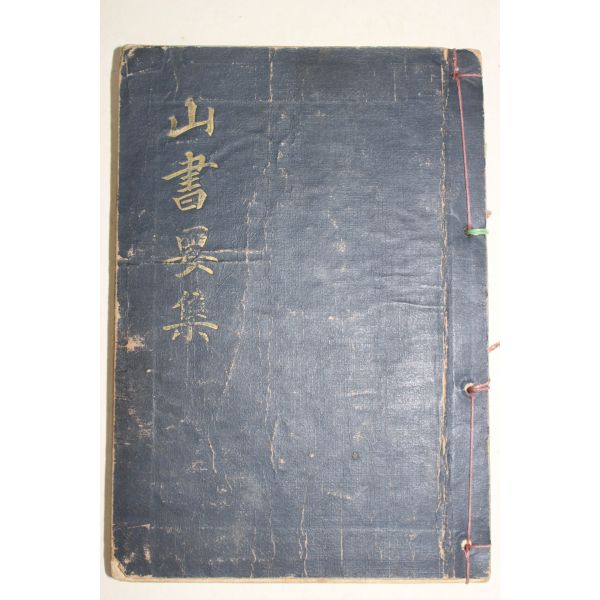 山書要集